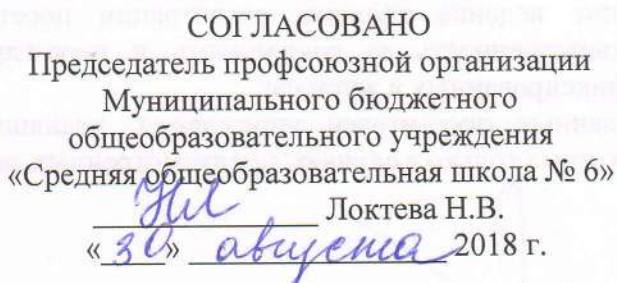 СОГЛАСОВАНО
Председатель профсоюзной организации
Муниципального бюджетного
общеобразовательного учреждения
«Средняя общеобразовательная школа № 6»
Локтева Н.В.
«30» августа 2018 г.